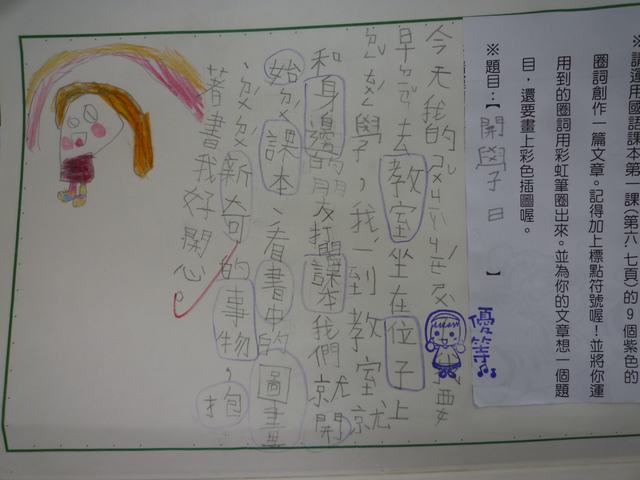 ※請運用國語課本第一課(第六八七頁)的9個紫色的
圈詞創作一篇文章。記得加上標點符號喔！並將你運
用到的圈詞用彩虹筆圈出來。並為你的文章想一個題
目，還要畫上彩色插圖喔。
※題目：【開學日】
優等
今天我的
早 去教室坐在位子上
學，我一到教室就
和身邊的朋友打開課本我們就開
始 課本、看書中的圖畫
、 新奇的事物，抱
著書我好開心。